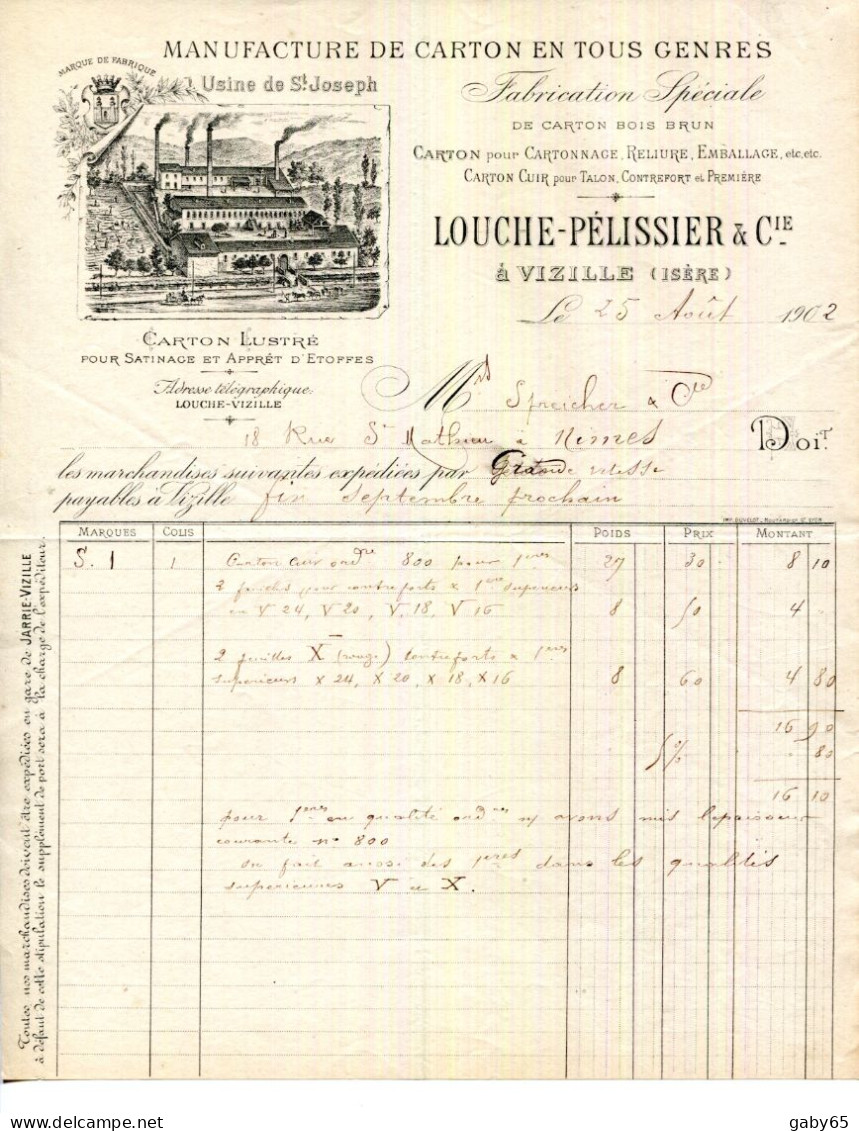 MANUFACTURE DE CARTON EN TOUS GENRES
MARQUE DE FABRIQUE
Usine de St. Joseph
Fabrication Spéciale
DE CARTON BOIS BRUN
CARTON pour CARTONNAGE, RELIURE, EMBALLAGE, etc, etc.
CARTON CUIR pour TALON, CONTREFORT et PREMIÈRE
LOUCHE-PÉLISSIER & CIE
à VIZILLE (ISÈRE)
Le 25 Août 1902
CARTON LUSTRÉ
POUR SATINAGE ET APPRÊT D'ETOFFES
Adresse télégraphique:
LOUCHE-VIZILLE
Mrs Spreicher & Cie
18 Rue St Mathieu à Nimes Doit
les marchandises suivantes expédiées par Grande vitesse
payables à Vizille fin Septembre prochain
MARQUES COLIS POIDS PRIX MONTANT
S. 1 1 Carton Cuir ordre 800 pour 1eres 27 30 8 10
2 feuilles pour contreforts & 1eres superieurs
en V 24, V 20, V. 18, V 16 8 50 4
2 feuilles X (rouge) Contreforts & 1eres
superieurs X 24, X 20, X 18, X 16 8 60 4 80
16 90
5% 80
16 10
pour 1eres en qualité ordres n/ avons mis l'epaisseur
courante no 800
On fait aussi des 1eres dans les qualités
superieures V et X.
Toutes nos marchandises doivent être expédiées en gare de JARRIE-VIZILLE
à défaut de cette stipulation le supplément de port sera à la charge de l'expéditeur.
gaby65